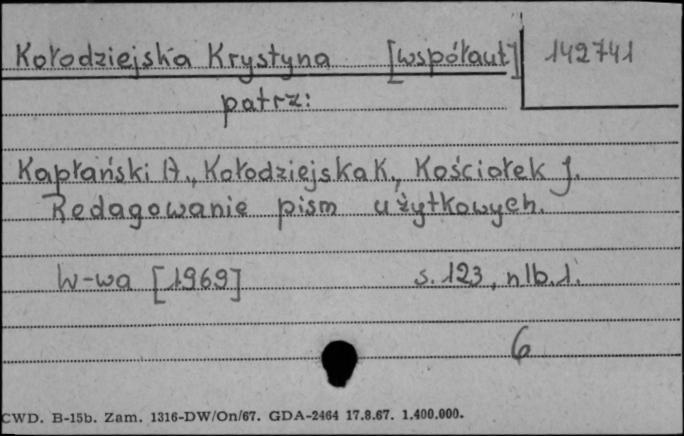 Kołodziejska Krystyna [współaut] 142741
patrz:
Kapłański A., Kołodziejska K., Kościołek J.
Redagowanie pism użytkowych.
W-wa [1969] s. 123, nlb. 1.
6
CWD. B-15b. Zam. 1316-DW/On/67. GDA-2464 17.8.67. 1.400.000.